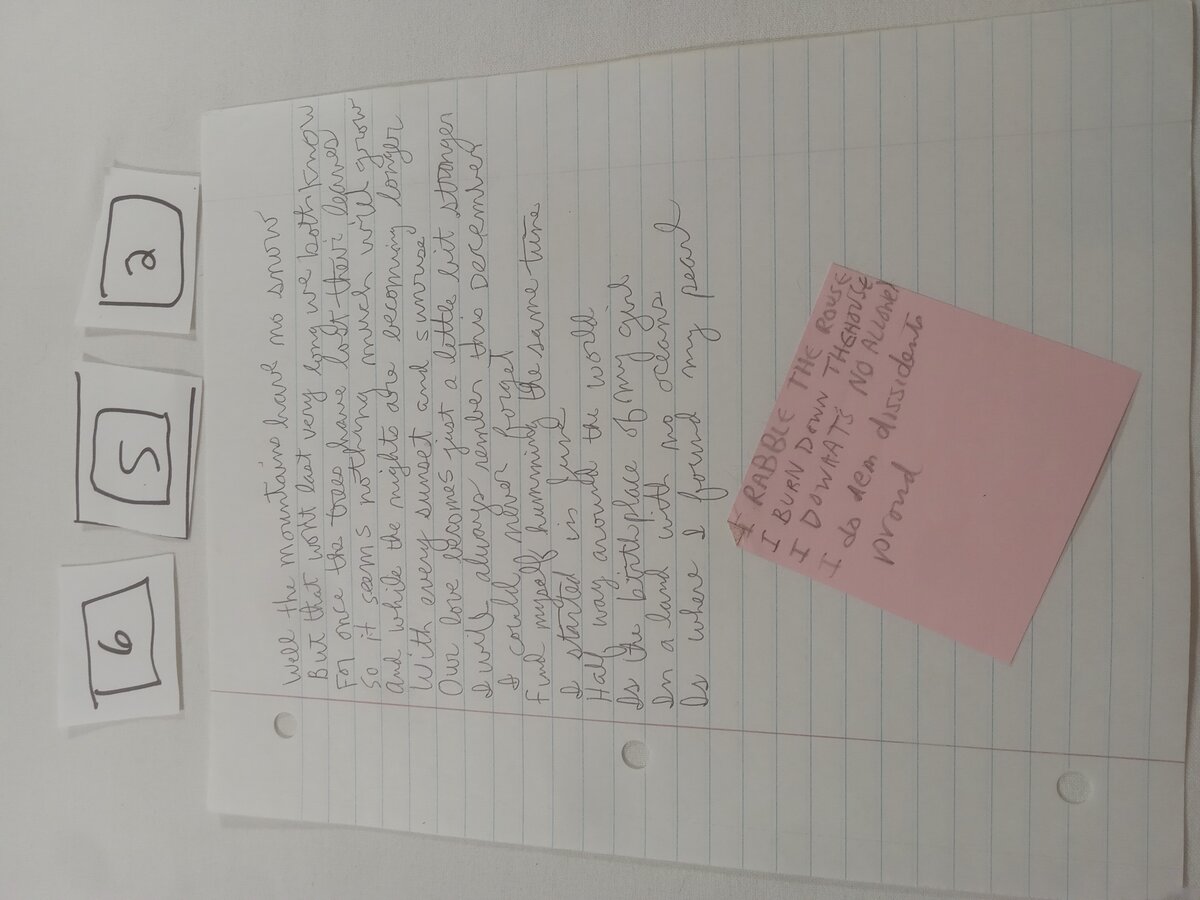 6 5 2
Well the mountains have no snow
But that wont last very long we both know
For once the trees have lost their leaves
So it seams nothing much will grow
And while the nights are becoming longer
With every sunset and sunrise
Our love becomes just a little bit stronger
I will always rember this december
I could never forget
Find myself humming the same tune
I started is june
Half way around the world
Is the birthplace of my girl
In a land with no oceans
Is where I found my pearl
I RABBLE THE ROUSE
I BURN DOWN THE HOUSE
I DO WHATS NO ALLOWED
I do dem dissidents
proud